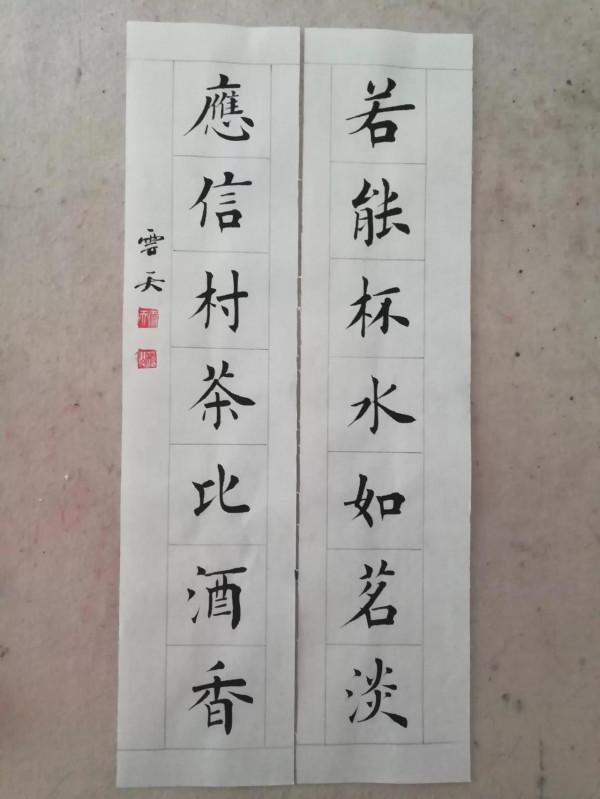 若能杯水如茗淡
應信村茶比酒香
雲天